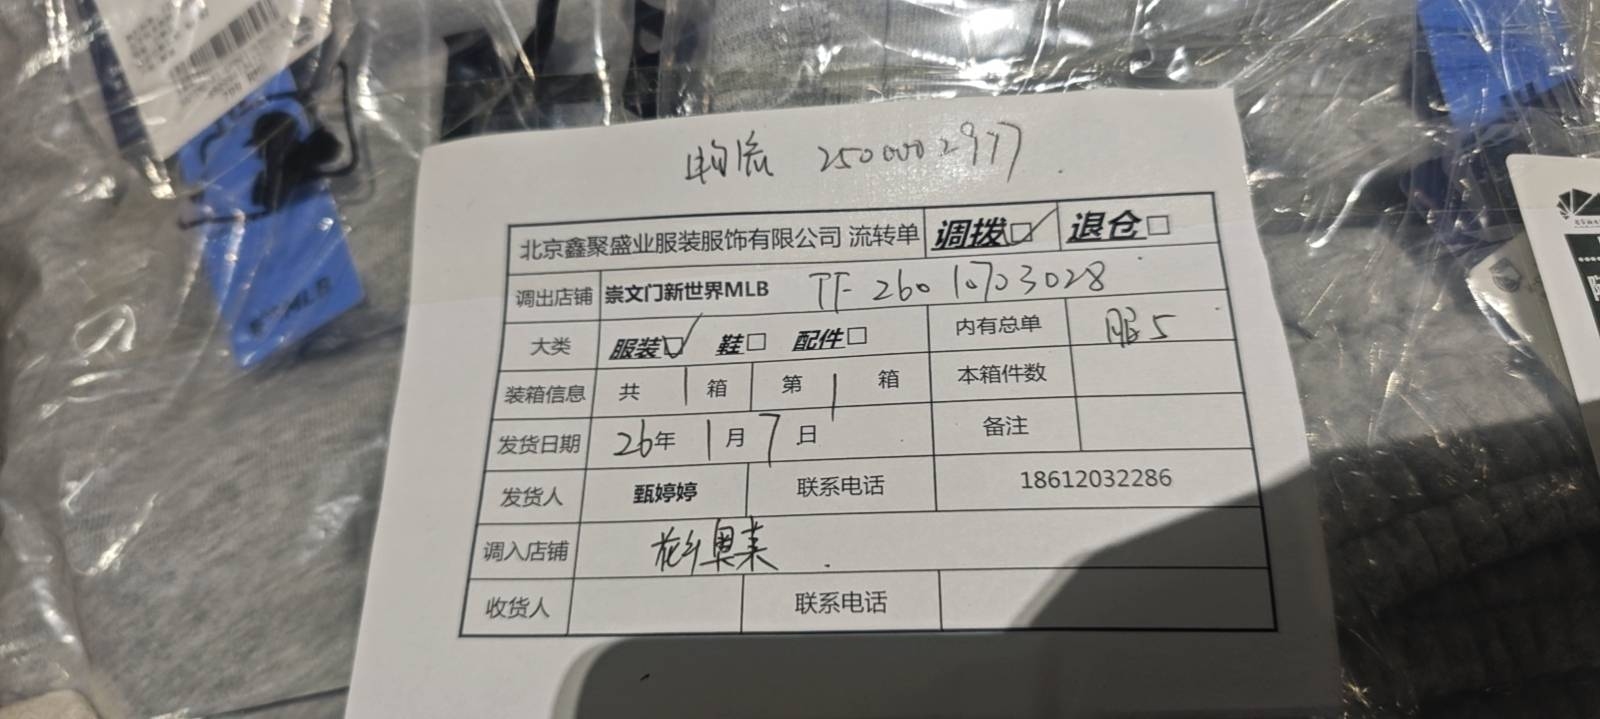 物流 2500002977
北京鑫聚盛业服装服饰有限公司 流转单 调拨☑ 退仓□
调出店铺 崇文门新世界MLB TF 26010703028
大类 服装☑ 鞋□ 配件□ 内有总单 服5
装箱信息 共 1 箱 第 1 箱 本箱件数
发货日期 26年 1月 7日 备注
发货人 甄婷婷 联系电话 18612032286
调入店铺 花乡奥莱
收货人 联系电话
MLB